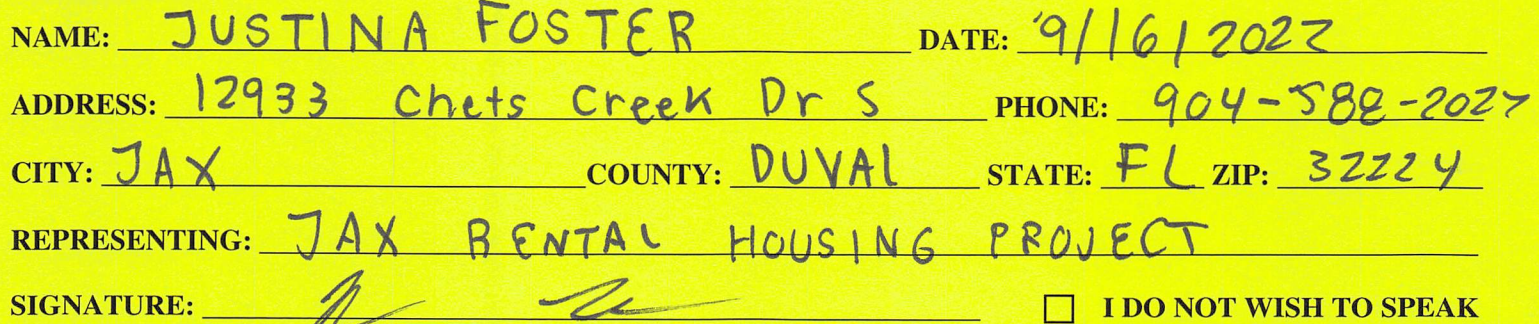 NAME: JUSTINA FOSTER DATE: 9/16/2022
ADDRESS: 12933 Chets Creek Dr S PHONE: 904-588-2027
CITY: JAX COUNTY: DUVAL STATE: FL ZIP: 32224
REPRESENTING: JAX RENTAL HOUSING PROJECT
SIGNATURE: ☐ I DO NOT WISH TO SPEAK